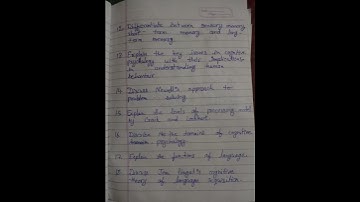 12. Differentiate between sensory memory
short-term memory and long-
term memory.
13. Explain the key issues in cognitive
psychology with their implications
in understanding human
behaviour.
14. Discuss approach to
problem solving
15. Explain the levels of processing model
by Craik and Lockhart.
16. Describe the domains of cognitive
psychology.
17. Explain the functions of language.
18. Discuss Jean Piaget's cognitive
theory of language acquisition.